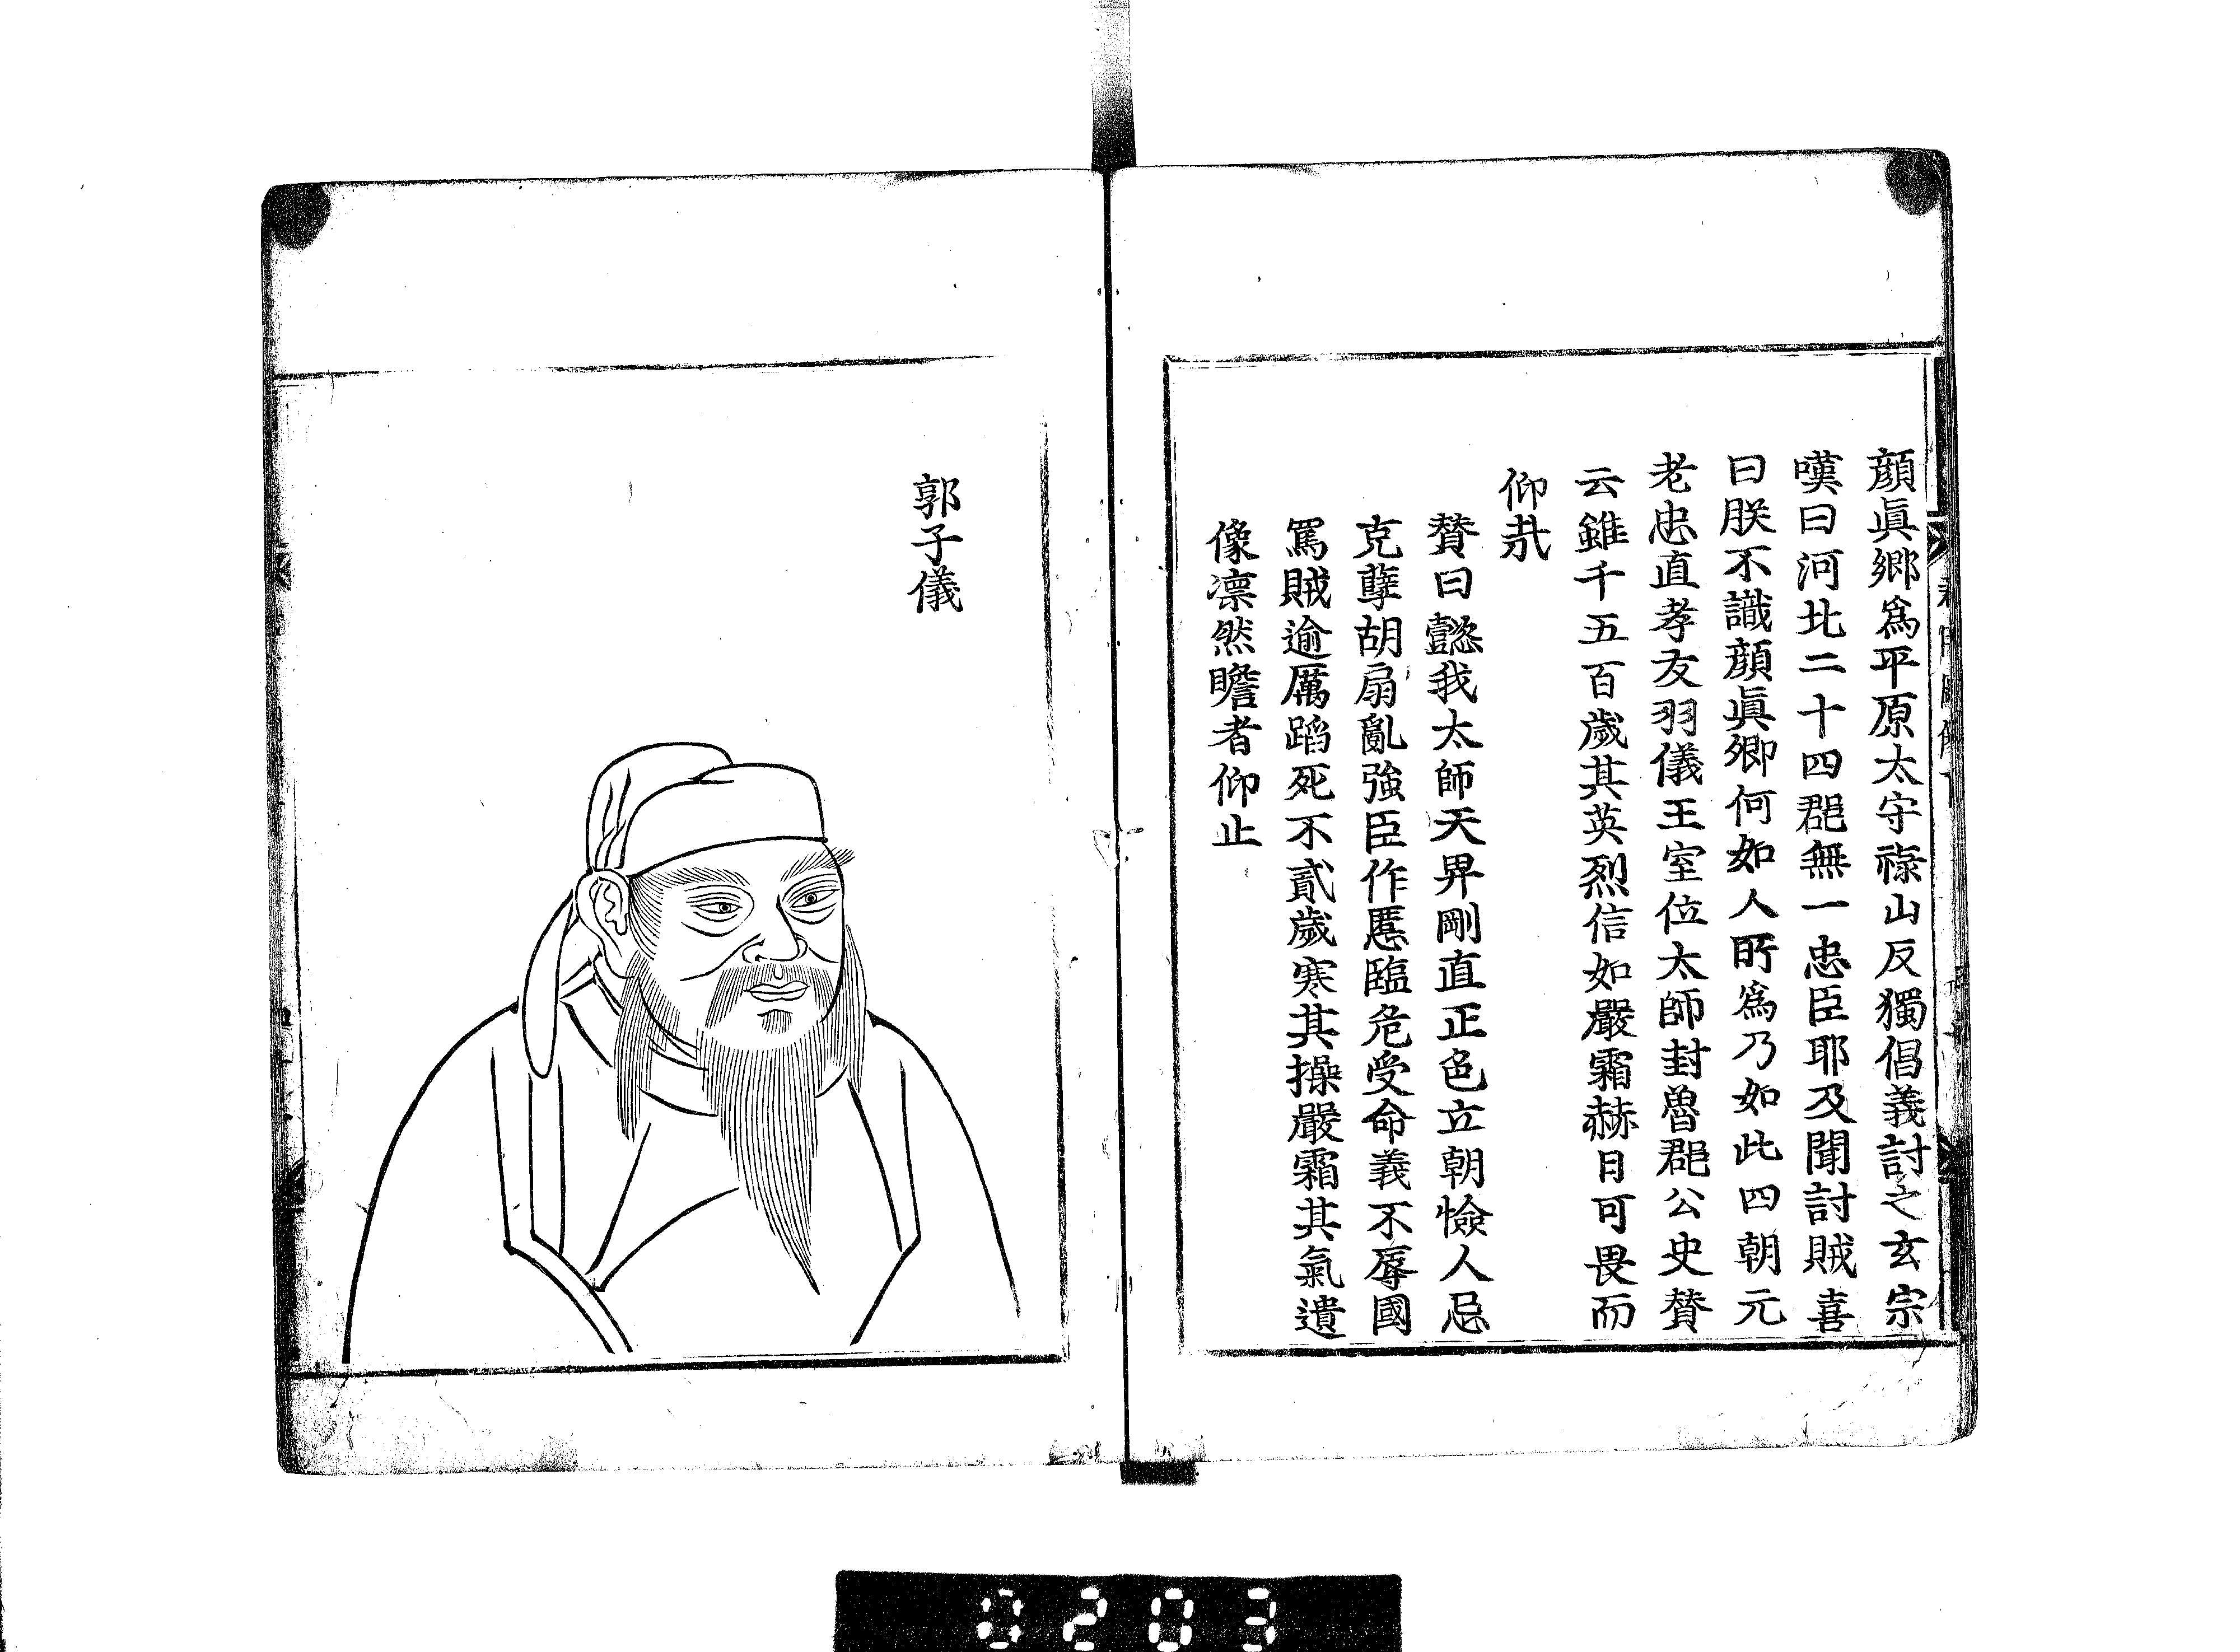 顔眞鄉爲平原太守祿山反獨倡義討之玄宗
嘆曰河北二十四郡無一忠臣耶及聞討賊喜
曰朕不識顔眞卿何如人所爲乃如此四朝元
老忠直孝友羽儀王室位太師封魯郡公史賛
云雖千五百歲其英烈信如嚴霜赫日可畏而
仰㢤
賛曰懿我太師天畀剛直正色立朝憸人忌
克孽胡扇亂強臣作慝臨危受命義不辱國
罵賊逾厲蹈死不貳歲寒其操嚴霜其氣遺
像凛然瞻者仰止
郭子儀
0203